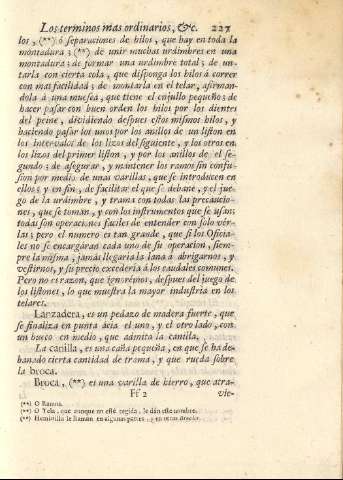 Los terminos mas ordinarios, &c. 227
los, (**) ó separaciones de hilos, que hay en toda la
montadura; (**) de unir muchas urdimbres en una
montadura; de formar una urdimbre total; de un-
tarla con cierta cola, que disponga los hilos á correr
con mas facilidad; de montarla en el telar, afirman-
dola á una muesca, que tiene el enjullo pequeño; de
hacer pasar con buen orden los hilos por los dientes
del peine, dividiendo despues estos mismos hilos, y
haciendo pasar los unos por los anillos de un liston en
los intervalos de los lizos del siguiente, y los otros en
los lizos del primer liston, y por los anillos de el se-
gundo; de asegurar, y mantener los ramos sin confu-
sion por medio de unas varillas, que se introducen en
ellos; y en fin, de facilitar el que se debane, y el jue-
go de la urdimbre, y trama con todas las precaucio-
nes, que se toman, y con los instrumentos que se usan;
todas son operaciones faciles de entender con solo vér-
las; pero el numero es tan grande, que si los Oficia-
les no se encargáran cada uno de su operacion, siem-
pre la misma, jamás llegaria la lana á abrigarnos, y
vestirnos, y su precio excederia á los caudales comunes.
Pero no es razon, que ignorémos, despues del juego de
los listones, lo que muestra la mayor industria en los
telares.
Lanzadera, es un pedazo de madera fuerte, que
se finaliza en punta ácia el uno, y el otro lado, con
un hueco en medio, que admita la canilla.
La canilla, es una caña pequeña, en que se ha de-
banado cierta cantidad de trama, y que rueda sobre
la broca.
Broca, (**) es una varilla de hierro, que atra-
Ff 2 vie-
(**) O Ramos.
(**) O Tela, que aunque no esté tegida, le dán este nombre.
(**) Hembrilla le llaman en algunas partes, y en otras